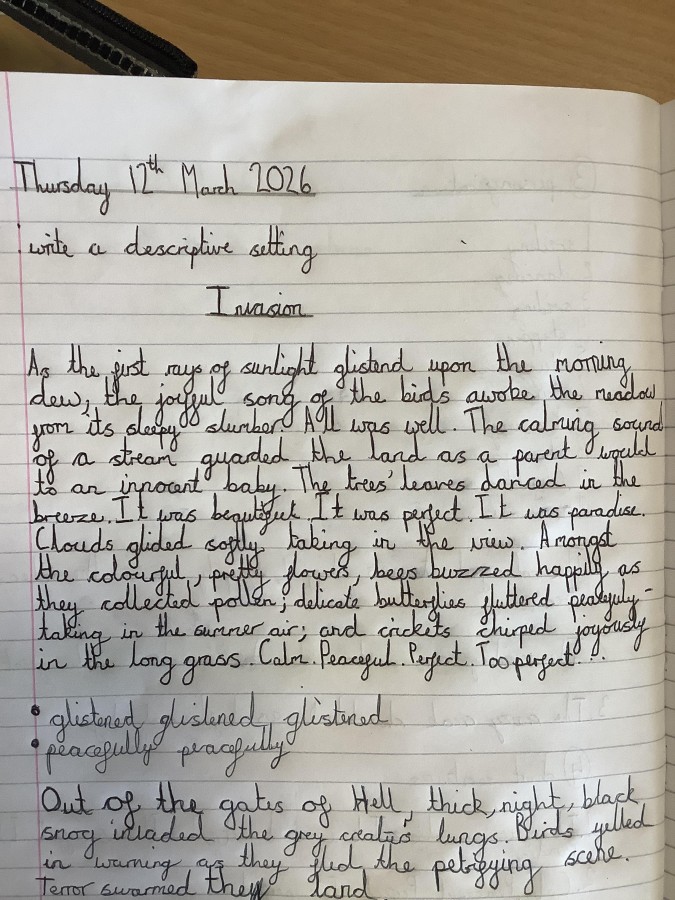 Thursday 12th March 2026
write a descriptive setting
Invasion
As the first rays of sunlight glistend upon the morning
dew, the joyful song of the birds awoke the meadow
from its sleepy slumber. All was well. The calming sound
of a stream guarded the land as a parent would
to an innocent baby. The trees' leaves danced in the
breeze. It was beautiful. It was perfect. It was paradise.
Clouds glided softly, taking in the view. Amongst
the colourful, pretty flowers, bees buzzed happily as
they collected pollen; delicate butterflies fluttered peacefuly-
taking in the summer air; and crickets chirped joyously
in the long grass. Calm. Peaceful. Perfect. Too perfect...
• glistened, glistened, glistened
• peacefully peacefully
Out of the gates of Hell, thick, night, black
smog invaded the grey lungs. Birds yelled
in warning as they fled the petrifying scene.
Terror swarmed the land